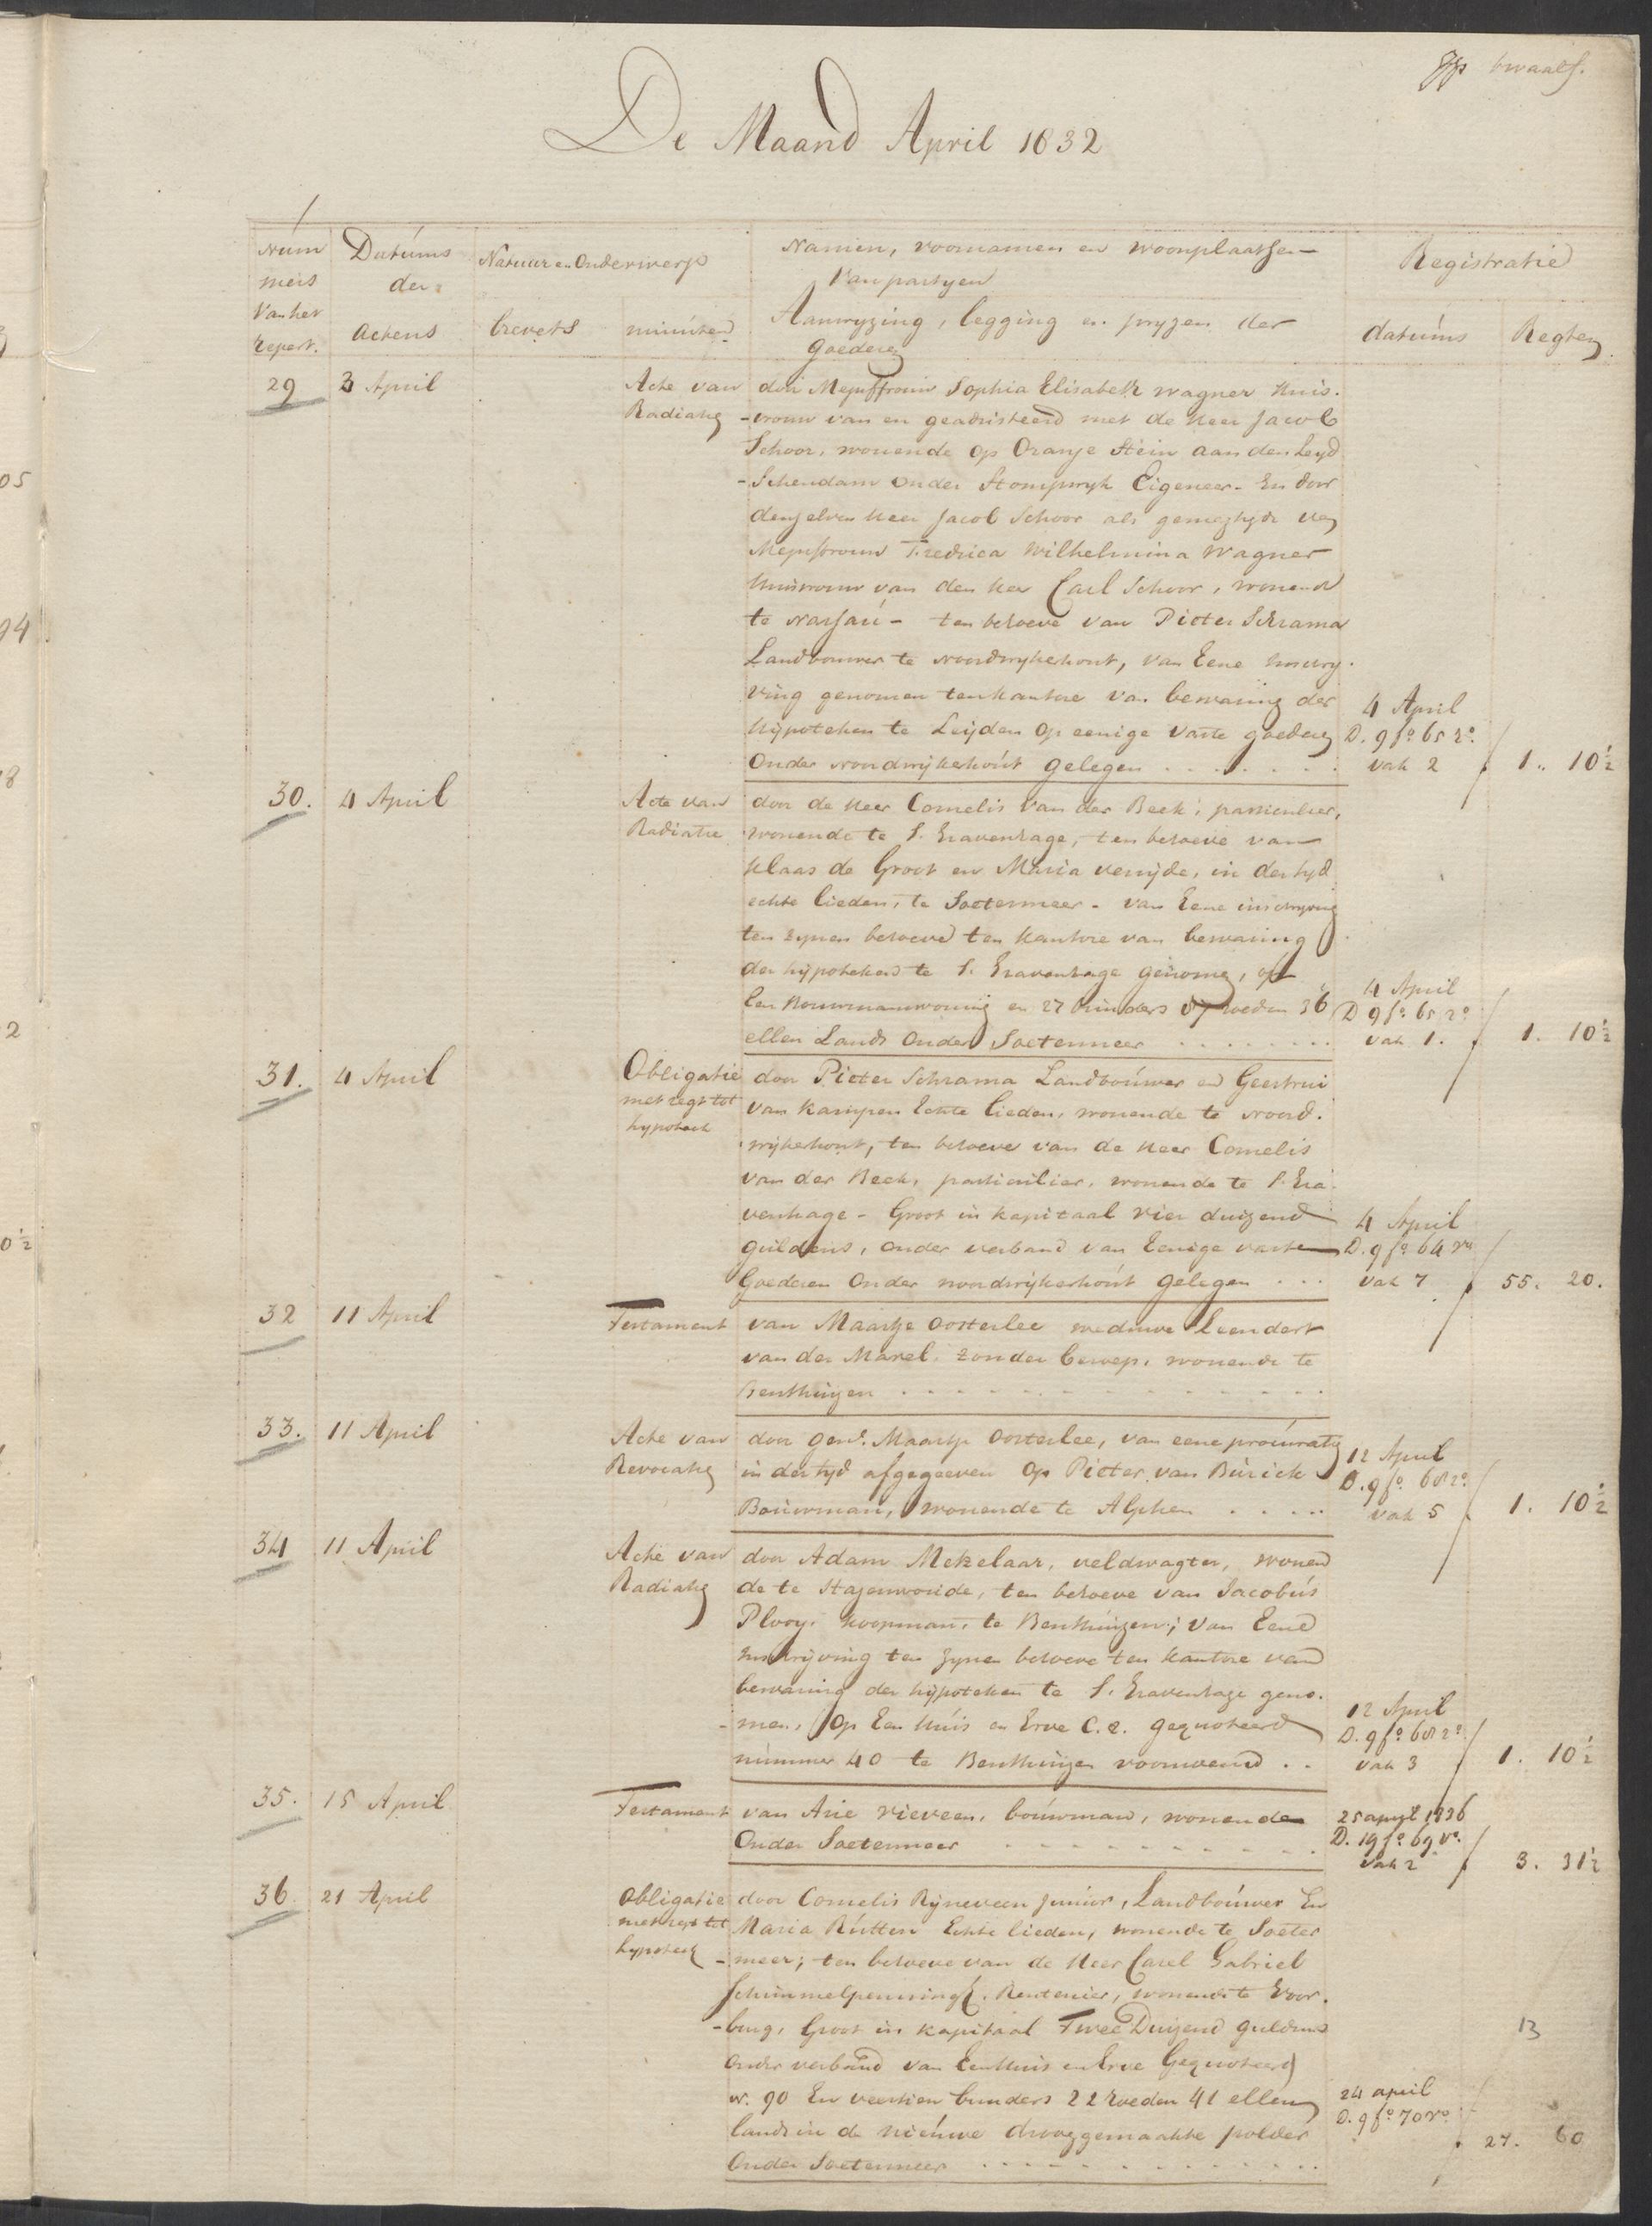 twaalf.
De Maand April 1832
Num
mers
Van het
repert.
Datúms
der
Actens
Natuur en Onderwerp
brevets
minúten
Namen, voornamen en woonplaatsen
Van partyen
Aanwyzing, legging en pryzen der
Goederen
Registratie
datúms
Regten
29
3 April
Acte van
Radiatie
door Mejuffrouw Sophia Elisabeth Wagner Huis-
-vrouw van en geadsisteerd met de Heer Jacob
Schoor, wonende op Oranje Stein aan den Leyd
-Schendam onder Stompwyk Eigeneer- En door
denzelven Heer Jacob Schoor als gemagtigde van
Mejufvrouw Fredrica Wilhelmina Wagner
Huisvrouw van den Heer Carl Schoor, wonende
te Nassaú - ten behoeve van Pieter Schrama
Landbouwer te Noordwykerhout, van Eene inschry-
ving genomen ten kantore van bewaring der
Hijpoteken te Leijden op eenige vaste goederen
Onder Noordwijkerhoút gelegen
4 April
D. 9 fo. 65 ro.
vak 2
1. 10½
30.
4 April
Acte van
Radiatie
door de Heer Cornelis van der Beek, particulier,
wonende te S. Gravenhage, ten behoeve van
Klaas de Groot en Maria verrijde, in der tyd
echte lieden, te Soetermeer - van Eene inschryving
ten zynen behoeve ten kantore van bewaring
der hijpoteken te S. Gravenhage genomen, op
Een Bouwmanswoning en 27 Bunders 87 roeden 36
ellen Lands Onder Soetermeer
4 April
D 9 fo. 65 ro.
vak 1.
1. 10½
31.
4 April
Obligatie
met regt tot
hypoteek
door Pieter Schrama Landboúwer en Geertrui
van Kampen Echte lieden, wonende te Noord-
wijkerhout, ten behoeve van de Heer Cornelis
van der Beek, particulier, wonende te S. Gra-
venhage - Groot in kapitaal vier duizend
guldens, onder verband van Eenige vaste
Goederen Onder noordwijkerhoút gelegen
4 April
D. 9 fo. 64 vo.
vak 7
55. 20.
32
11 April
Testament
van Maartje Oosterlee weduwe Leendert
van der Marel, zonder beroep, wonende te
Benthuizen
33.
11 April
Acte van
Revocatie
door gend. Maartje Oosterlee, van eene procúratie
in der tyd afgegeeven op Pieter van Búrick
Boúwman, wonende te Alphen
12 April
D. 9 fo. 68 ro.
vak 5
1. 10½
34
11 April
Acte van
Radiatie
door Adam Metzelaar, veldwagter, wonen
de te Hazerswoúde, ten behoeve van Jacobús
Plooy, koopman, te Benthúizen; van Eene
inschrijving ten zynen behoeve ten kantore van
bewaring der hijpoteken te S. Gravenhage geno-
-men, op Een Húis en Erve C.a. gequoteerd
númmer 40 te Benthuizen voornoemd
12 April
D. 9 fo. 68 ro.
vak 3
1. 10½
35.
15 April
Testament
van Arie Vieveen, boúwman, wonende
Onder Soetermeer
25 april 1836
D. 19 fo. 69 vo.
vak 2
3. 31½
36
21 April
Obligatie
met regt tot
hypoteek
door Cornelis Rijneveen Junior, Landboúwer En
Maria Rútten Echte lieden, wonende te Soeter
-meer; ten behoeve van de Heer Carel Gabriel
Schimmelpenningk. Rentenier, wonende te Voor-
-burg, Groot in kapitaal Twee Duizend guldens
Onder verband van Een Huis en Erve Gequoteerd
N. 90 En veertien bunders 22 roeden 41 ellen
lands in de nieúwe drooggemaakte polder
Onder Soetermeer
24 april
D. 9 fo. 70 ro.
13
27. 60